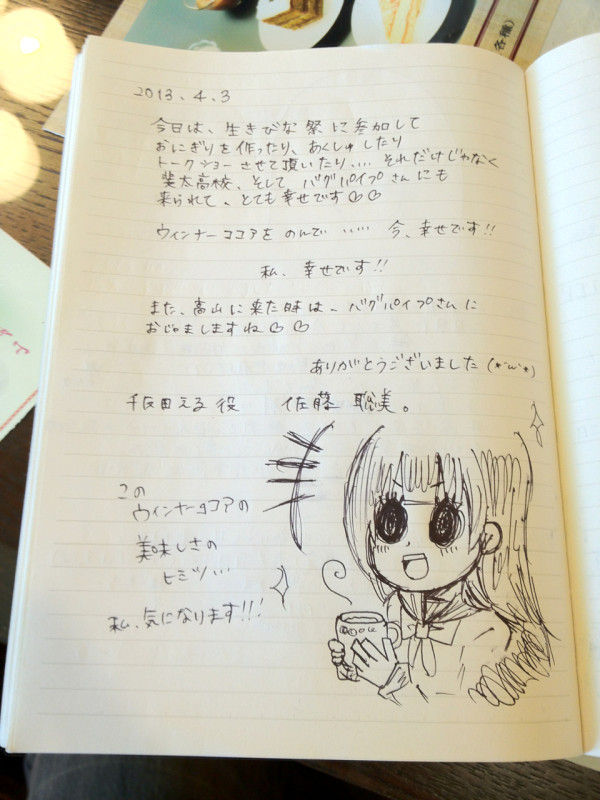 各種)
2013.4.3
今日は、生きびな祭に参加して
おにぎりを作ったり、あくしゅしたり
トークショーさせて頂いたり、… それだけじゃなく
斐太高校、そして バグパイプさんにも
来られて、とても幸せです♡♡
ウィンナーココアを のんで …… 今、幸せです!!
私、幸せです!!
また、高山に来た時は、バグパイプさんに
おじゃましますね♡♡
ありがとうございました (*´ω`*)
千反田える役 佐藤 聡美。
この
ウィンナーココアの
美味しさの
ヒミツ…
私、気になります!!!